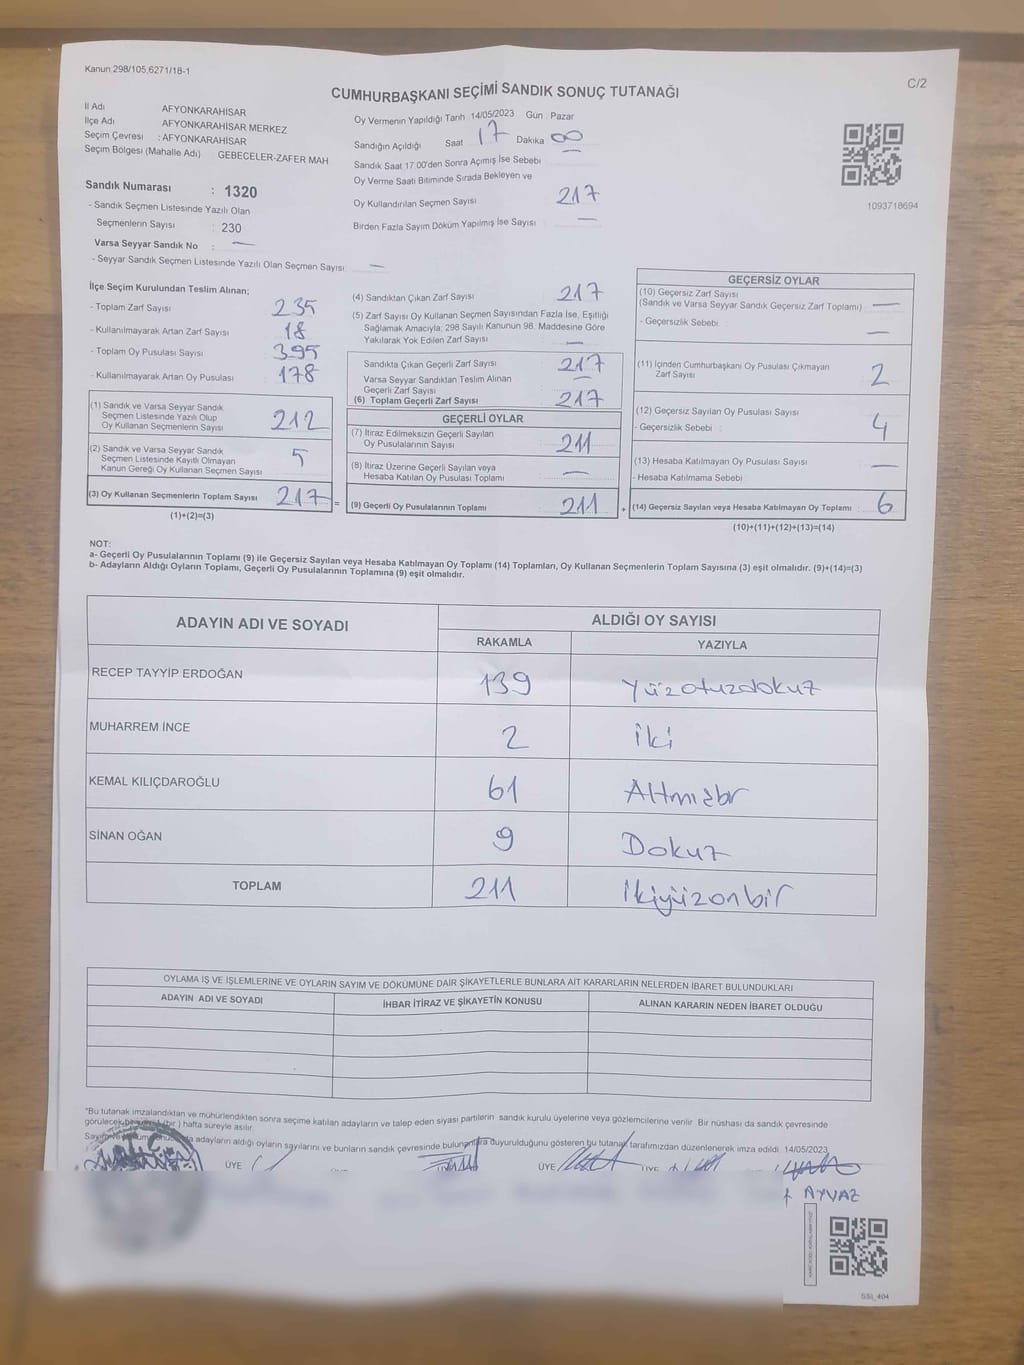 Kanun:298/105,6271/18-1
C/2
CUMHURBAŞKANI SEÇİMİ SANDIK SONUÇ TUTANAĞI
İl Adı AFYONKARAHİSAR
İlçe Adı AFYONKARAHİSAR MERKEZ
Seçim Çevresi : AFYONKARAHİSAR
Seçim Bölgesi (Mahalle Adı) GEBECELER-ZAFER MAH
Sandık Numarası : 1320
- Sandık Seçmen Listesinde Yazılı Olan
Seçmenlerin Sayısı : 230
Varsa Seyyar Sandık No : —
- Seyyar Sandık Seçmen Listesinde Yazılı Olan Seçmen Sayısı: —
Oy Vermenin Yapıldığı Tarih 14/05/2023 Gün : Pazar
Sandığın Açıldığı Saat 17 Dakika 00
Sandık Saat 17.00'den Sonra Açımış İse Sebebi —
Oy Verme Saati Bitiminde Sırada Bekleyen ve
Oy Kullandırılan Seçmen Sayısı 217
Birden Fazla Sayım Döküm Yapılmış İse Sayısı —
1093718694
İlçe Seçim Kurulundan Teslim Alınan;
- Toplam Zarf Sayısı 235
- Kullanılmayarak Artan Zarf Sayısı 18
- Toplam Oy Pusulası Sayısı 395
- Kullanılmayarak Artan Oy Pusulası 178
(1) Sandık ve Varsa Seyyar Sandık
Seçmen Listesinde Yazılı Olup
Oy Kullanan Seçmenlerin Sayısı 212
(2) Sandık ve Varsa Seyyar Sandık
Seçmen Listesinde Kayıtlı Olmayan
Kanun Gereği Oy Kullanan Seçmen Sayısı 5
(3) Oy Kullanan Seçmenlerin Toplam Sayısı 217 =
(1)+(2)=(3)
(4) Sandıktan Çıkan Zarf Sayısı 217
(5) Zarf Sayısı Oy Kullanan Seçmen Sayısından Fazla İse, Eşitliği
Sağlamak Amacıyla; 298 Sayılı Kanunun 98. Maddesine Göre
Yakılarak Yok Edilen Zarf Sayısı —
Sandıkta Çıkan Geçerli Zarf Sayısı 217
Varsa Seyyar Sandıktan Teslim Alınan
Geçerli Zarf Sayısı —
(6) Toplam Geçerli Zarf Sayısı 217
GEÇERLİ OYLAR
(7) İtiraz Edilmeksizin Geçerli Sayılan
Oy Pusulalarının Sayısı 211
(8) İtiraz Üzerine Geçerli Sayılan veya
Hesaba Katılan Oy Pusulası Toplamı —
(9) Geçerli Oy Pusulalarının Toplamı 211 +
GEÇERSİZ OYLAR
(10) Geçersiz Zarf Sayısı
(Sandık ve Varsa Seyyar Sandık Geçersiz Zarf Toplamı) —
- Geçersizlik Sebebi : —
(11) İçinden Cumhurbaşkanı Oy Pusulası Çıkmayan
Zarf Sayısı 2
(12) Geçersiz Sayılan Oy Pusulası Sayısı 4
- Geçersizlik Sebebi :
(13) Hesaba Katılmayan Oy Pusulası Sayısı —
- Hesaba Katılmama Sebebi :
(14) Geçersiz Sayılan veya Hesaba Katılmayan Oy Toplamı : 6
(10)+(11)+(12)+(13)=(14)
NOT:
a- Geçerli Oy Pusulalarının Toplamı (9) ile Geçersiz Sayılan veya Hesaba Katılmayan Oy Toplamı (14) Toplamları, Oy Kullanan Seçmenlerin Toplam Sayısına (3) eşit olmalıdır. (9)+(14)=(3)
b- Adayların Aldığı Oyların Toplamı, Geçerli Oy Pusulalarının Toplamına (9) eşit olmalıdır.
ADAYIN ADI VE SOYADI
ALDIĞI OY SAYISI
RAKAMLA YAZIYLA
RECEP TAYYİP ERDOĞAN 139 Yüzotuzdokuz
MUHARREM İNCE 2 iki
KEMAL KILIÇDAROĞLU 61 Altmışbir
SİNAN OĞAN 9 Dokuz
TOPLAM 211 İkiyüzonbir
OYLAMA İŞ VE İŞLEMLERİNE VE OYLARIN SAYIM VE DÖKÜMÜNE DAİR ŞİKAYETLERLE BUNLARA AİT KARARLARIN NELERDEN İBARET BULUNDUKLARI
ADAYIN ADI VE SOYADI İHBAR İTİRAZ VE ŞİKAYETİN KONUSU ALINAN KARARIN NEDEN İBARET OLDUĞU
*Bu tutanak imzalandıktan ve mühürlendikten sonra seçime katılan adayların ve talep eden siyasi partilerin sandık kurulu üyelerine veya gözlemcilerine verilir. Bir nüshası da sandık çevresinde
görülecek bir yere (bir ) hafta süreyle asılır.
adayların aldığı oyların sayılarını ve bunların sandık çevresinde bulunanlara duyurulduğunu gösteren bu tutanak tarafımızdan düzenlenerek imza edildi. 14/05/2023
ÜYE ÜYE ÜYE
AYVAZ
SSİ_404